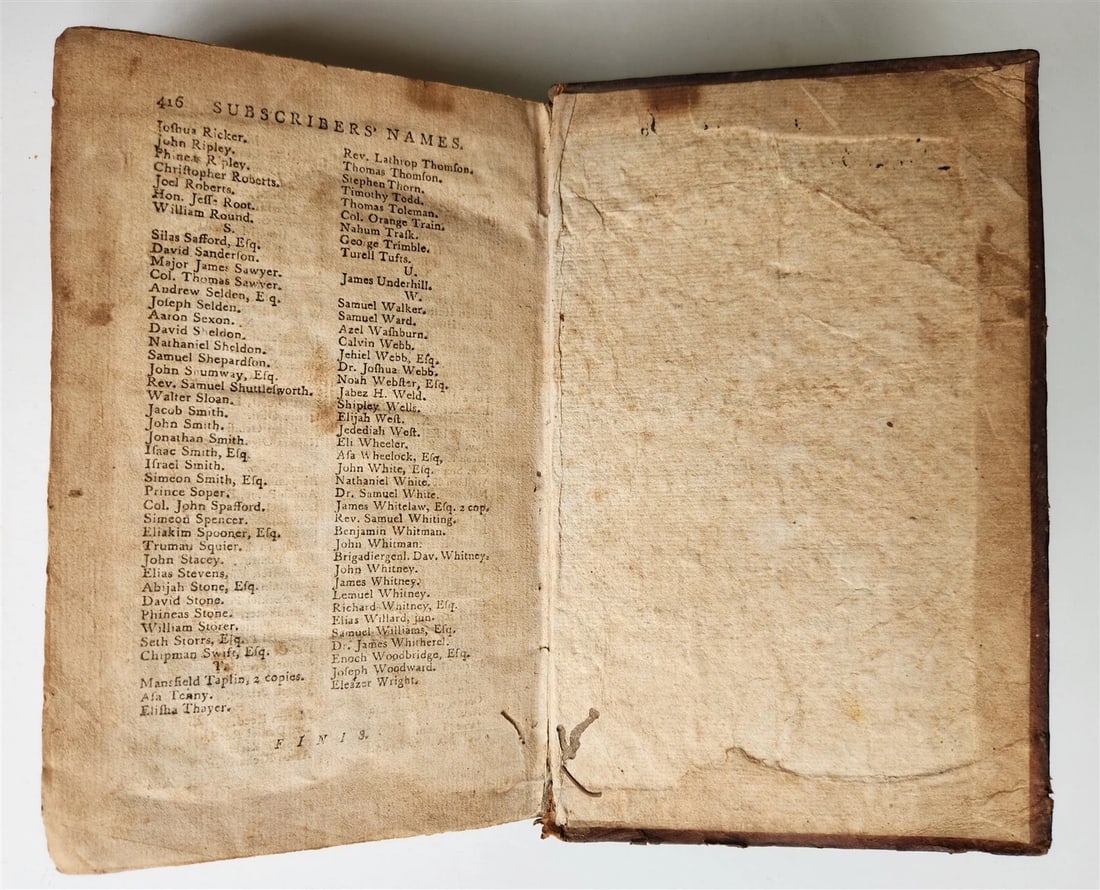 416 SUBSCRIBERS' NAMES.
Joſhua Ricker.
John Ripley.
Phineas R pley.
Chriſtopher Roberts.
Joel Roberts.
Hon. Jeſſe Root.
William Round.
S.
Silas Safford, Eſq.
David Sanderſon.
Major James Sawyer.
Col. Thomas Sawyer.
Andrew Selden, E q.
Joſeph Selden.
Aaron Sexon.
David S eldon.
Nathaniel Sheldon.
Samuel Shepardſon.
John S umway, Eſq.
Rev. Samuel Shuttleſworth.
Walter Sloan.
Jacob Smith.
John Smith.
Jonathan Smith.
Iſaac Smith, Eſq.
Iſrael Smith.
Simeon Smith, Eſq.
Prince Soper.
Col. John Spafford.
Simeon Spencer.
Eliakim Spooner, Eſq.
Truman Squier.
John Stacey.
Elias Stevens,
Abijah Stone, Eſq.
David Stone.
Phineas Stone.
William Storer.
Seth Storrs, Eſq.
Chipman Swift, Eſq.
T.
Mansfield Taplin, 2 copies.
Aſa Tenny.
Eliſha Thayer.
Rev. Lathrop Thomſon.
Thomas Thomſon.
Stephen Thorn.
Timothy Todd.
Thomas Toleman.
Col. Orange Train.
Nahum Traſk.
George Trimble.
Turell Tufts.
U.
James Underhill.
W.
Samuel Walker.
Samuel Ward.
Azel Waſhburn.
Calvin Webb.
Jehiel Webb, Eſq.
Dr. Joſhua Webb.
Noah Webſter, Eſq.
Jabez H. Weld.
Shipley Wells.
Elijah Weſt.
Jedediah Weſt.
Eli Wheeler.
Aſa Wheelock, Eſq,
John White, Eſq.
Nathaniel White.
Dr. Samuel White.
James Whitelaw, Eſq. 2 cop.
Rev. Samuel Whiting.
Benjamin Whitman.
John Whitman.
Brigadiergenl. Dav. Whitney.
John Whitney.
James Whitney.
Lemuel Whitney.
Richard Whitney, Eſq.
Elias Willard, jun.
Samuel Williams, Eſq.
Dr. James Whitherel.
Enoch Woodbridge, Eſq.
Joſeph Woodward.
Eleazer Wright.
FINIS.